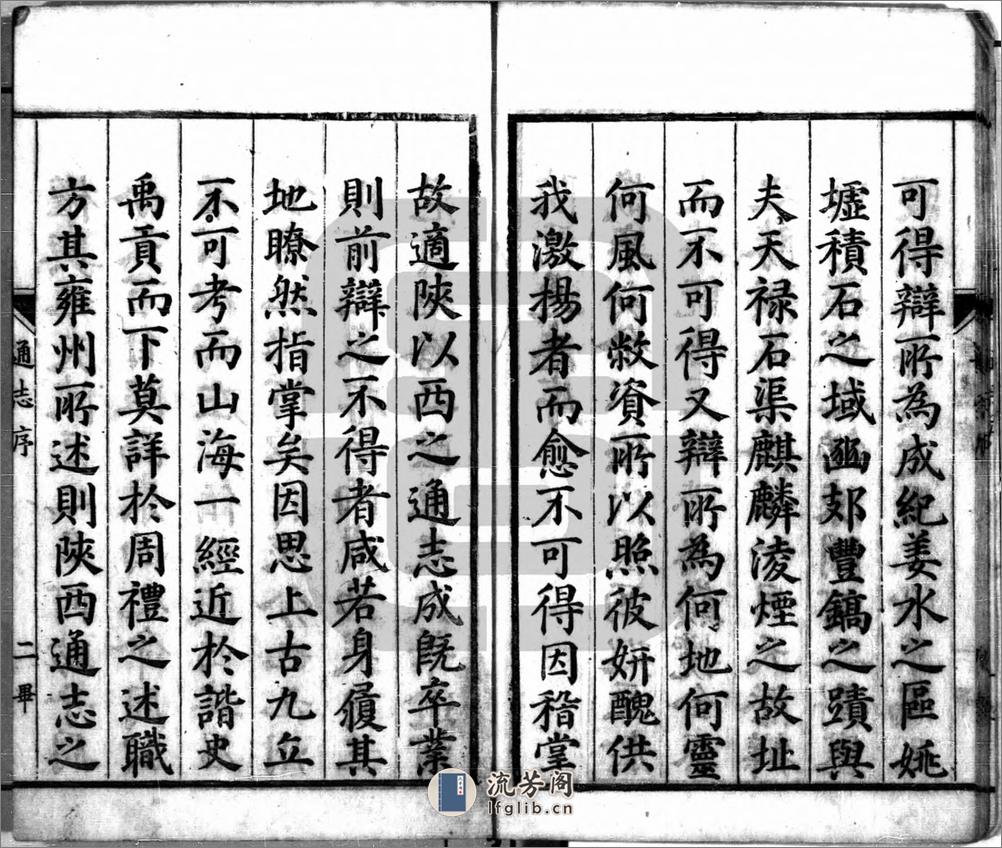 可得辯所為成紀姜水之區姚
墟積石之域豳郊豐鎬之蹟與
夫天禄石渠麒麟淩煙之故址
而不可得又辯所為何地何靈
何風何敝資所以照彼妍醜供
我激揚者而愈不可得因稽掌
故適陝以西之通志成旣卒業
則前辯之不得者咸若身履其
地瞭然指掌矣因思上古九丘
不可考而山海一經近於諧史
禹貢而下莫詳於周禮之述職
方其雍州所述則陝西通志之
通志序
二
畢
流芳阁
lfglib.cn